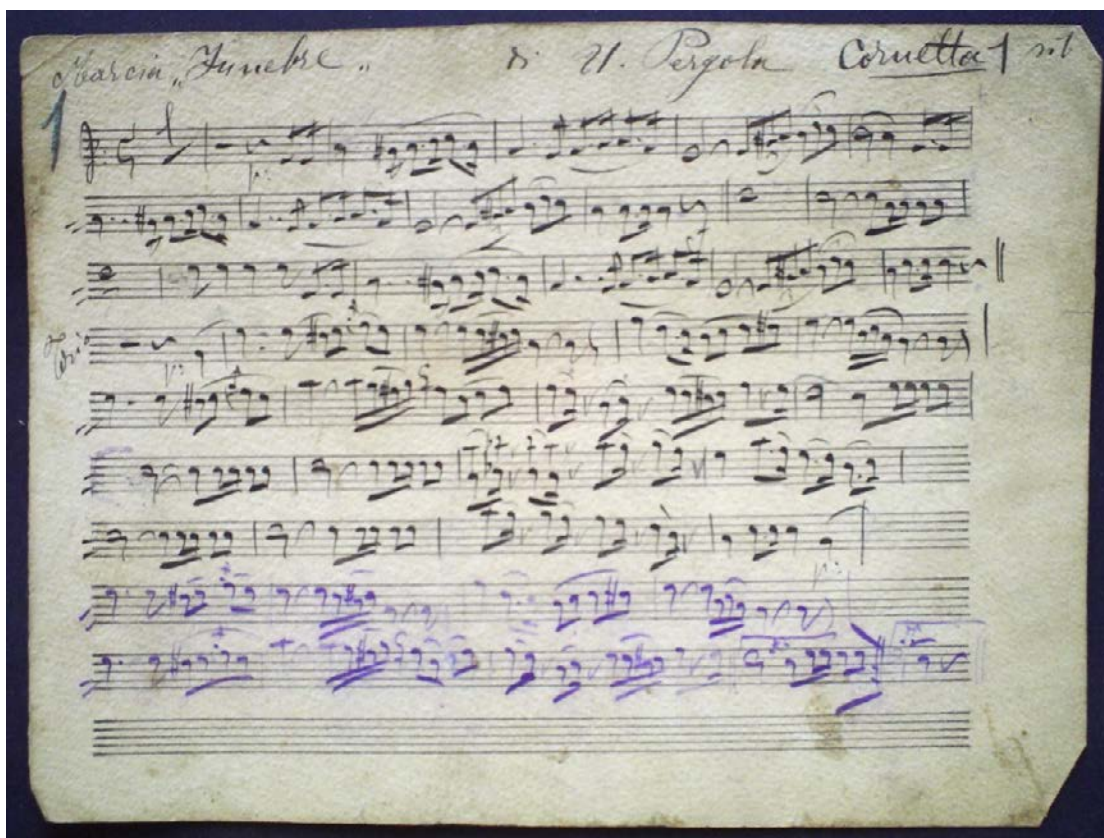 Marcia „Funebre„ di U. Pergola Cornetta 1 sib
1
Trio